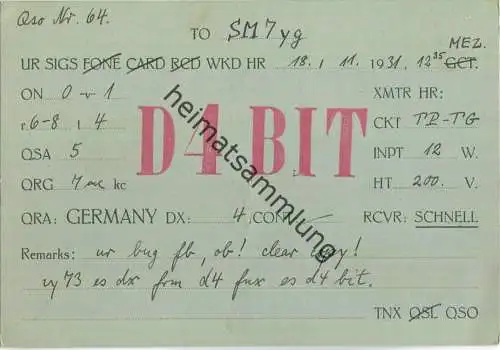 Qso Nr. 64.
TO SM7yg
MEZ.
UR SIGS FONE CARD RCD WKD HR 18. 11. 1931. 12 35 GCT.
ON 0-v-1 XMTR HR:
r6-8 t 4 CKT TP-TG
D4BIT
QSA 5 INPT 12 W.
QRG 7 mc kc HT 200. V.
QRA: GERMANY DX: 4, CON RCVR: SCHNELL
Remarks: ur bug fb, ob! clear !
vy 73 es dx frm d4 fnx es d4 bit.
TNX QSL QSO
heimatsammlung